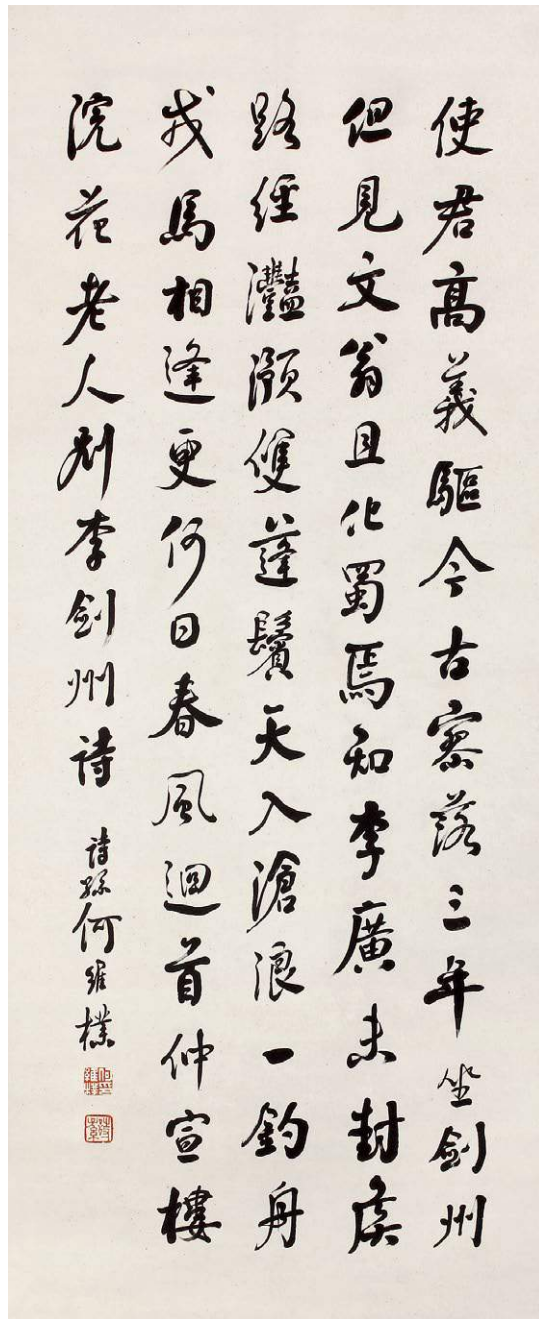 使君高義驅今古寥落三年坐劍州
但見文翁且化蜀焉知李廣未封侯
路經灩澦雙蓬鬢天入滄浪一釣舟
戎馬相逢更何日春風迴首仲宣樓
浣花老人別李劍州詩
詩孫何維樸